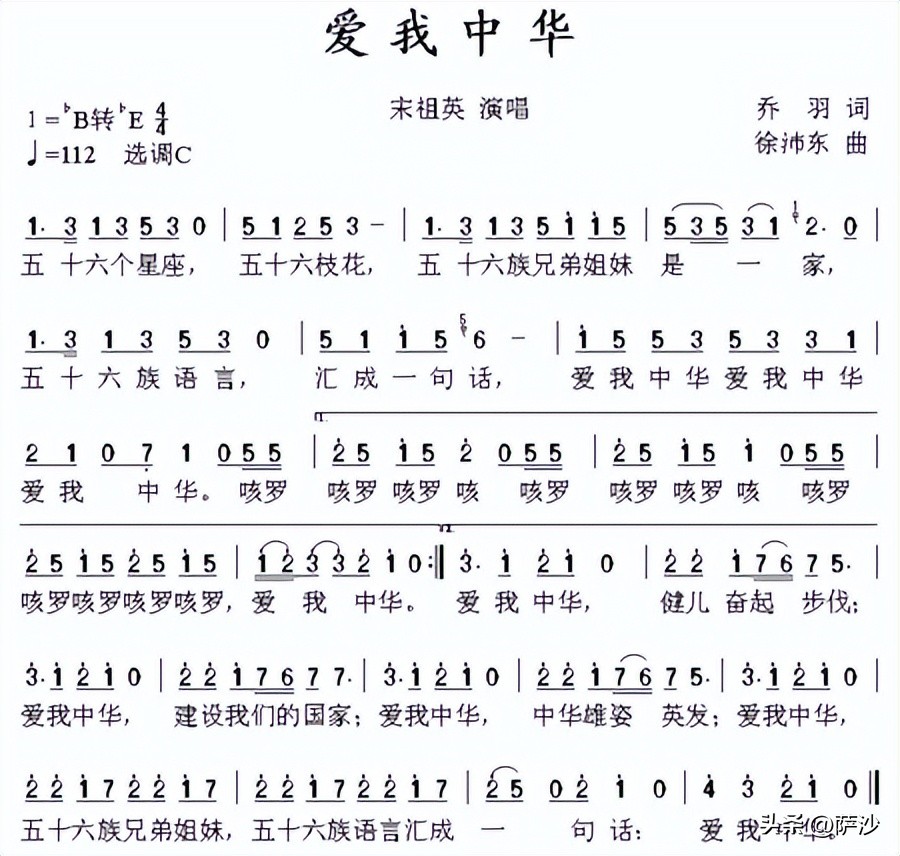 爱我中华
1=♭B转♭E 4/4 宋祖英 演唱 乔 羽 词
♩=112 选调C 徐沛东 曲
1. 3 1 3 5 3 0 | 5 1 2 5 3 - | 1. 3 1 3 5 i i 5 | 5 3 5 3 1 1 2. 0 |
五 十六个星座, 五十六枝花, 五 十六族兄弟姐妹 是 一 家,
1. 3 1 3 5 3 0 | 5 1 i 5 5 6 - | i 5 5 3 5 3 3 1 |
五 十 六 族 语 言, 汇 成 一 句 话, 爱 我 中 华 爱 我 中 华
1.
2 1 0 7 1 0 5 5 | 2 5 i 5 2 0 5 5 | 2 5 i 5 i 0 5 5 |
爱 我 中 华。 咳罗 咳罗 咳罗 咳 咳罗 咳罗 咳罗 咳 咳罗
2.
2 5 i 5 2 5 i 5 | i 2 3 3 2 i 0 :| 3. i 2 i 0 | 2 2 i 7 6 7 5. |
咳罗咳罗咳罗咳罗, 爱 我 中华。 爱 我 中华, 健儿 奋起 步伐;
3. i 2 i 0 | 2 2 i 7 6 7 7. | 3. i 2 i 0 | 2 2 i 7 6 7 5. | 3. i 2 i 0 |
爱我中华, 建设我们的国家; 爱我中华, 中华雄姿 英发; 爱我中华,
2 2 i 7 2 2 i 7 | 2 2 i 7 2 2 i 7 | 2 5 0 2 i 0 | 4 3 2 i 0 ||
五十六族兄弟姐妹, 五十六族语言汇成 一 句 话: 爱 我 中华。
头条@萨沙